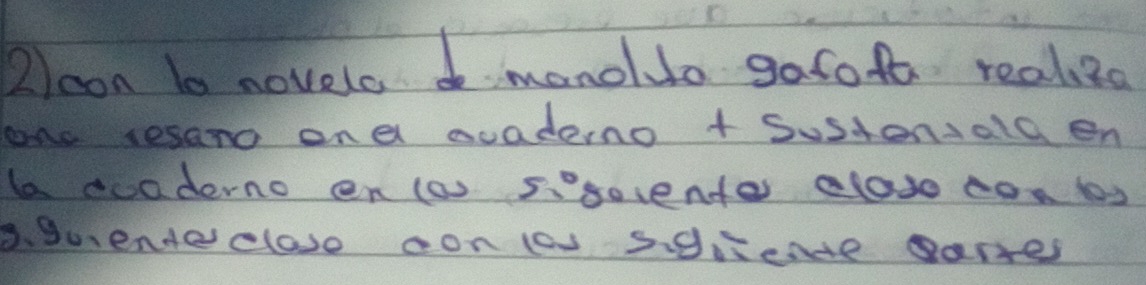 2) con la novela de manolito gafota realiza
una resano en el cuaderno + Sustensala en
la cuaderno en las siguiente clase con los
siguiente clase con las siguiente partes